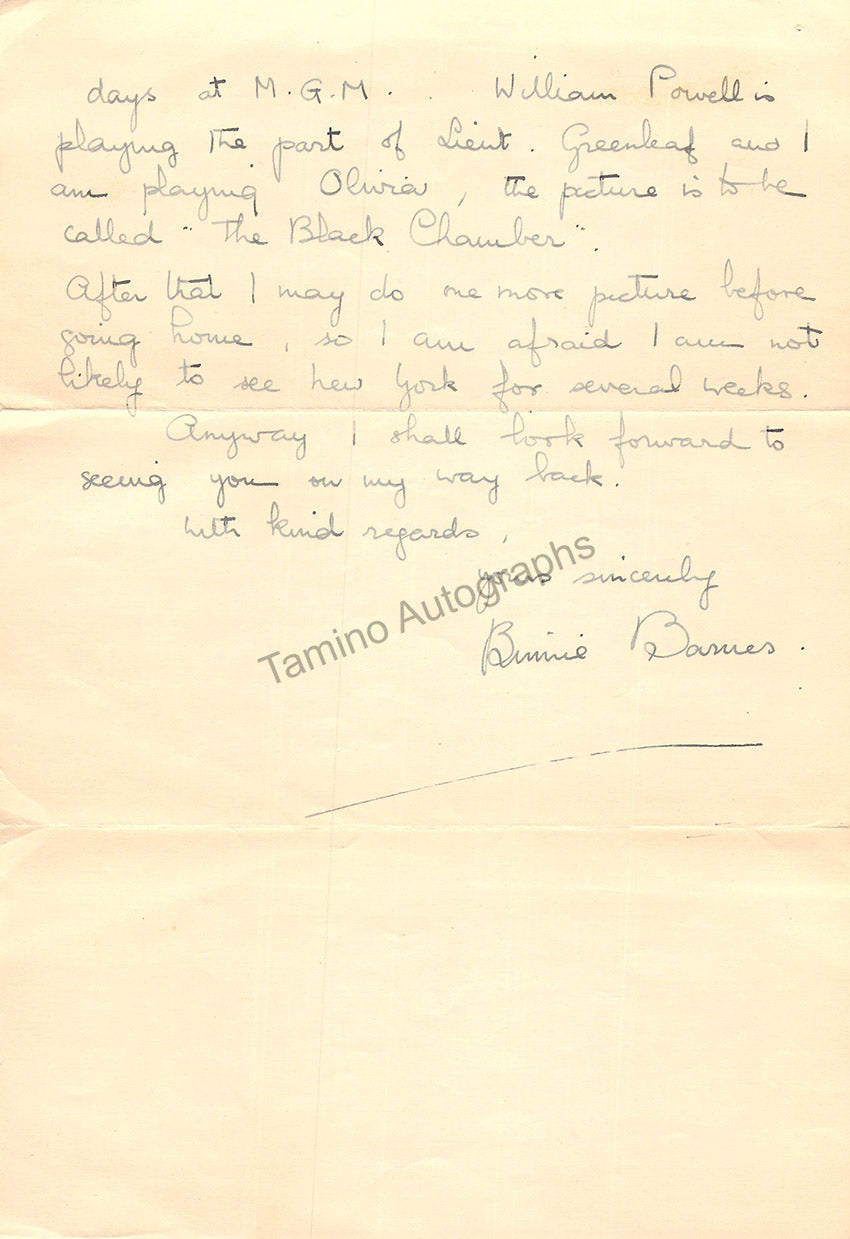 days at M.G.M. . William Powell is
playing the part of Lieut. Greenleaf and I
am playing Olivia, the picture is to be
called "The Black Chamber".
After that I may do one more picture before
going home, so I am afraid I am not
likely to see new York for several weeks.
Anyway I shall look forward to
seeing you on my way back.
With kind regards,
yours sincerely
Binnie Barnes.
Tamino Autographs